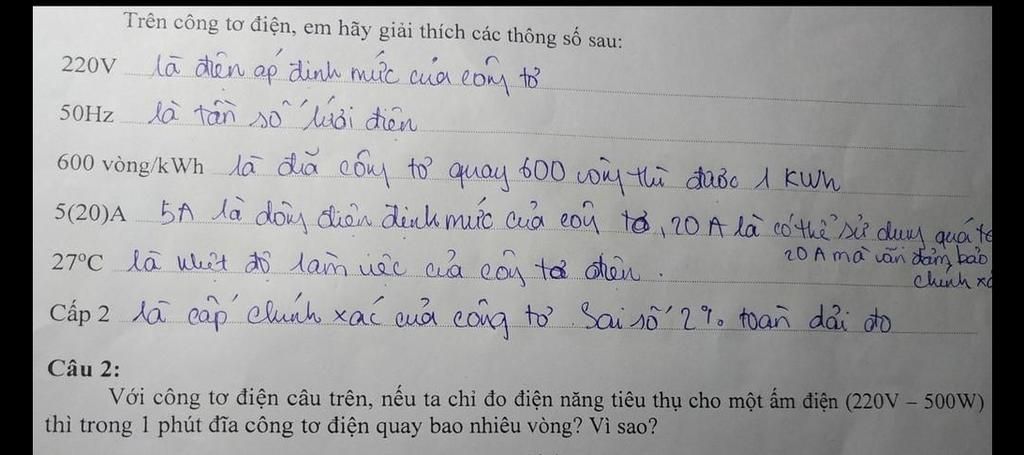 Trên công tơ điện, em hãy giải thích các thông số sau:
220V là điện áp định mức của công tơ
50Hz là tần số lưới điện
600 vòng/kWh là đĩa công tơ quay 600 vòng thì được 1 KWh
5(20)A 5A là dòng điện định mức của công tơ, 20A là có thể sử dụng quá tả
20A mà vẫn đảm bảo
chính xá
27°C là nhiệt độ làm việc của công tơ điện.
Cấp 2 là cấp chính xác của công tơ Sai số 2% toàn dải đo
Câu 2:
Với công tơ điện câu trên, nếu ta chỉ đo điện năng tiêu thụ cho một ấm điện (220V – 500W)
thì trong 1 phút đĩa công tơ điện quay bao nhiêu vòng? Vì sao?